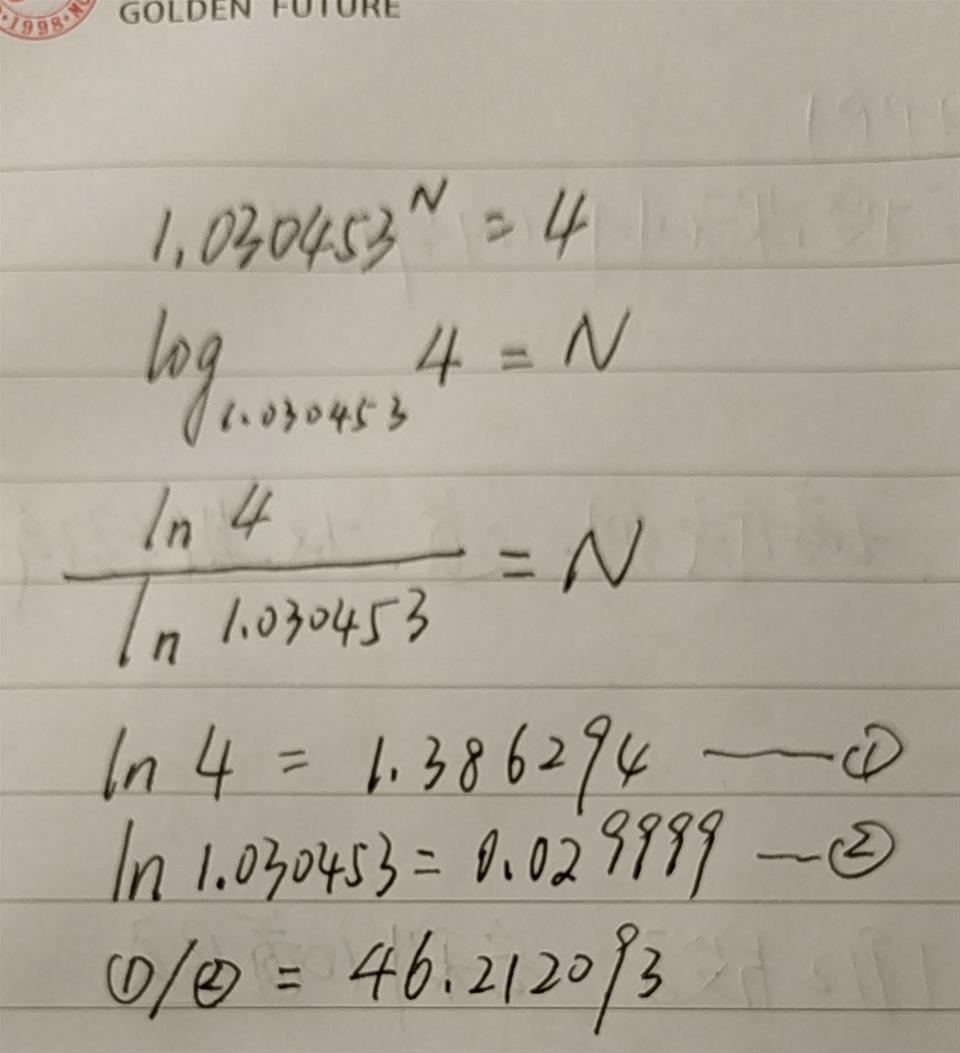 ·1998·
GOLDEN FUTURE
1.030453^N = 4
log_1.030453 4 = N
ln 4 / ln 1.030453 = N
ln 4 = 1.386294 —— ①
ln 1.030453 = 0.029999 — ②
①/② = 46.212093